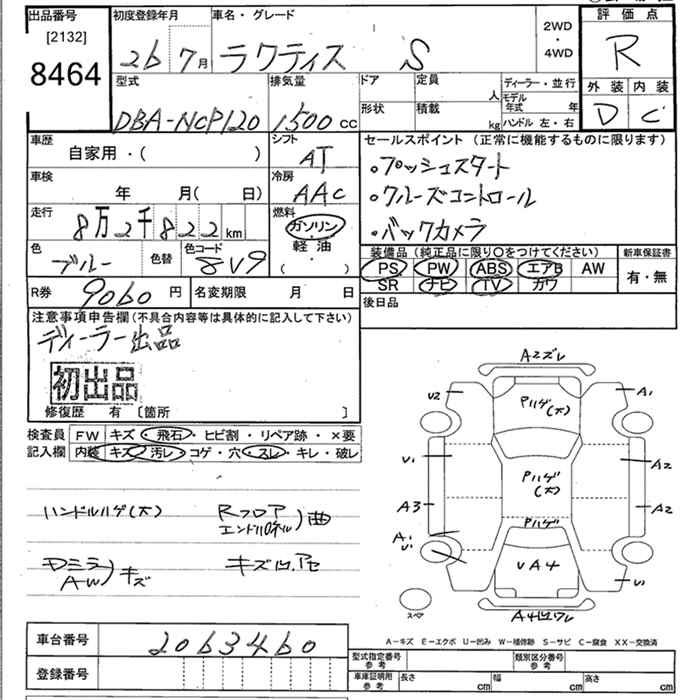 出品番号
[2132]
8464
初度登録年月
26 7月
車名・グレード
ラクティス S
2WD
・
4WD
評価点
R
外装 内装
D C
型式
DBA-NCP120
排気量
1500 CC
ドア
形状
定員
人
積載
kg
ディーラー・並行
モデル年式 年
ハンドル 左・右
車歴
自家用・( )
シフト
AT
車検
年 月( 日)
冷房
AAC
走行
8万2千822km
燃料
ガソリン
軽油
( ・ )
色
ブルー
色替
色コード
8V9
R券 9060円
名変期限 月 日
セールスポイント (正常に機能するものに限ります)
・プッシュスタート
・クルーズコントロール
・バックカメラ
装備品 (純正品に限り〇をつけてください)
PS PW ABS エアB AW
SR ナビ TV カワ
新車保証書
有・無
後日品
注意事項申告欄(不具合内容等は具体的に記入して下さい)
ディーラー出品
初出品
修復歴 有 〔箇所 〕
検査員
記入欄
FW キズ・飛石・ヒビ割・リペア跡・×要
内装 キズ・汚レ・コゲ・穴・スレ・キレ・破レ
ハンドルハゲ(大)
Rフロア
エンドパネル)曲
ドミラ
AW)キズ
キズ凹.アセ
A2ズレ
U2
A1
Pハゲ(大)
U1
A2
Pハゲ
(大)
A3
A2
Pハゲ
A1
U1
UA4
U1
スペア
A4凹ワレ
A-キズ E-エクボ U-凹み W-補修跡 S-サビ C-腐食 XX-交換済
車台番号
2063460
登録番号
型式指定番号
参考
類別区分番号
参考
車庫証明用
参考
長さ cm
幅 cm
高さ cm